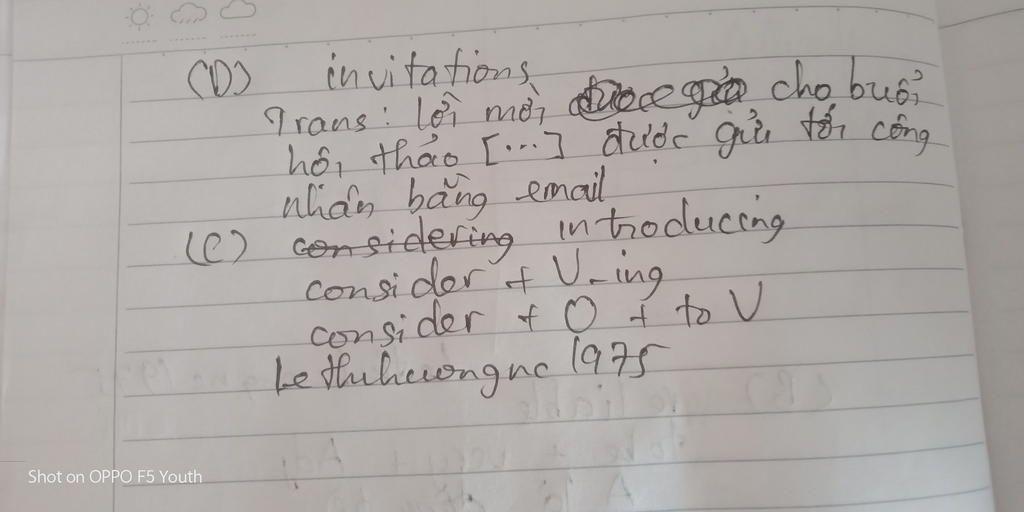 (D) invitations
Trans: lời mời cho buổi
hội thảo [...] được gửi tới công
nhân bằng email
(C) considering introducing
consider + V-ing
consider + O + to V
Lethuhuongnc 1975
Shot on OPPO F5 Youth